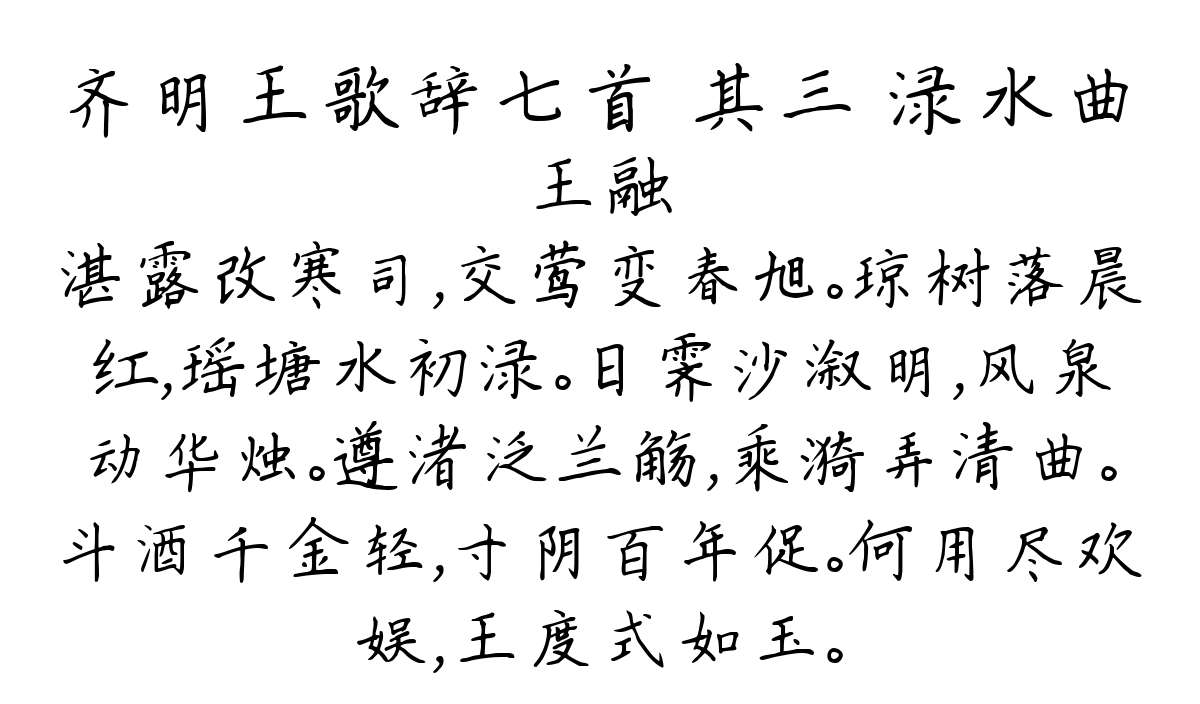 齐明王歌辞七首 其三 渌水曲
王融
湛露改寒司,交莺变春旭。琼树落晨
红,瑶塘水初渌。日霁沙溆明,风泉
动华烛。遵渚泛兰觞,乘漪弄清曲。
斗酒千金轻,寸阴百年促。何用尽欢
娱,王度式如玉。